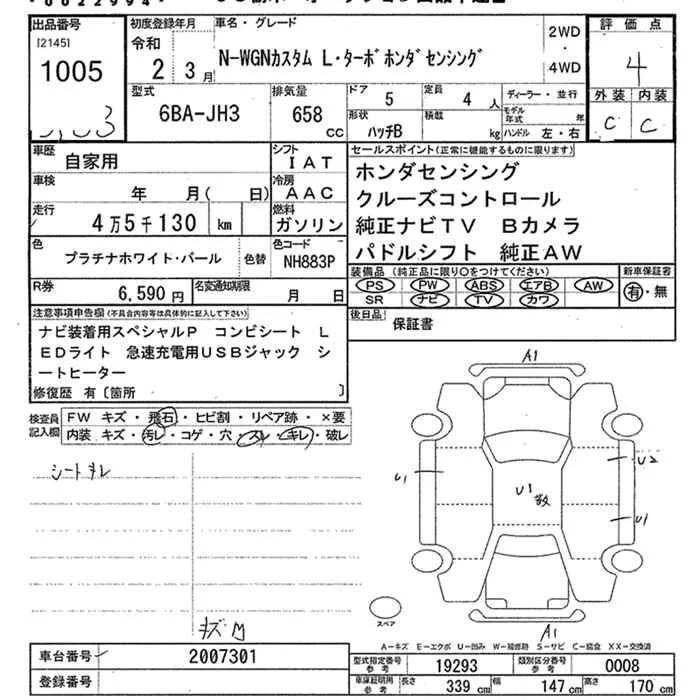 0022994
出品番号
[2145]
1005
初度登録年月
令和
2 3月
車名・グレード
N-WGNカスタム L・ターボホンダセンシング
2WD
・
4WD
評価点
4
外装 内装
C C
型式
6BA-JH3
排気量
658
CC
ドア
5
定員
4 人
形状
ハッチB
積載
kg
ディーラー・並行
モデル年式 年
ハンドル 左・右
車歴
自家用
シフト
IAT
車検
年 月( 日)
冷房
AAC
走行
4万5千130 km
燃料
ガソリン
色
プラチナホワイト・パール
色替
色コード
NH883P
R券
6,590円
名変通知期限
月 日
セールスポイント(正常に機能するものに限ります)
ホンダセンシング
クルーズコントロール
純正ナビTV Bカメラ
パドルシフト 純正AW
装備品(純正品に限り○をつけてください)
PS PW ABS エアB AW
SR ナビ TV カワ
新車保証書
有・無
後日品
保証書
注意事項申告欄(不具合内容等は具体的に記入して下さい)
ナビ装着用スペシャルP コンビシート L
EDライト 急速充電用USBジャック シ
ートヒーター
修復歴 有〔箇所 〕
検査員
記入欄
FW キズ・飛石・ヒビ割・リペア跡・×要
内装 キズ・汚レ・コゲ・穴・スレ・キレ・破レ
シートキレ
A1
U1
U2
U1
数
U1
スペア
A1
A-キズ E-エクボ U-凹み W-補修跡 S-サビ C-腐食 XX-交換済
車台番号
2007301
登録番号
型式指定番号
参考
19293
類別区分番号
参考
0008
車庫証明用
参考
長さ 339 cm
幅 147 cm
高さ 170 cm